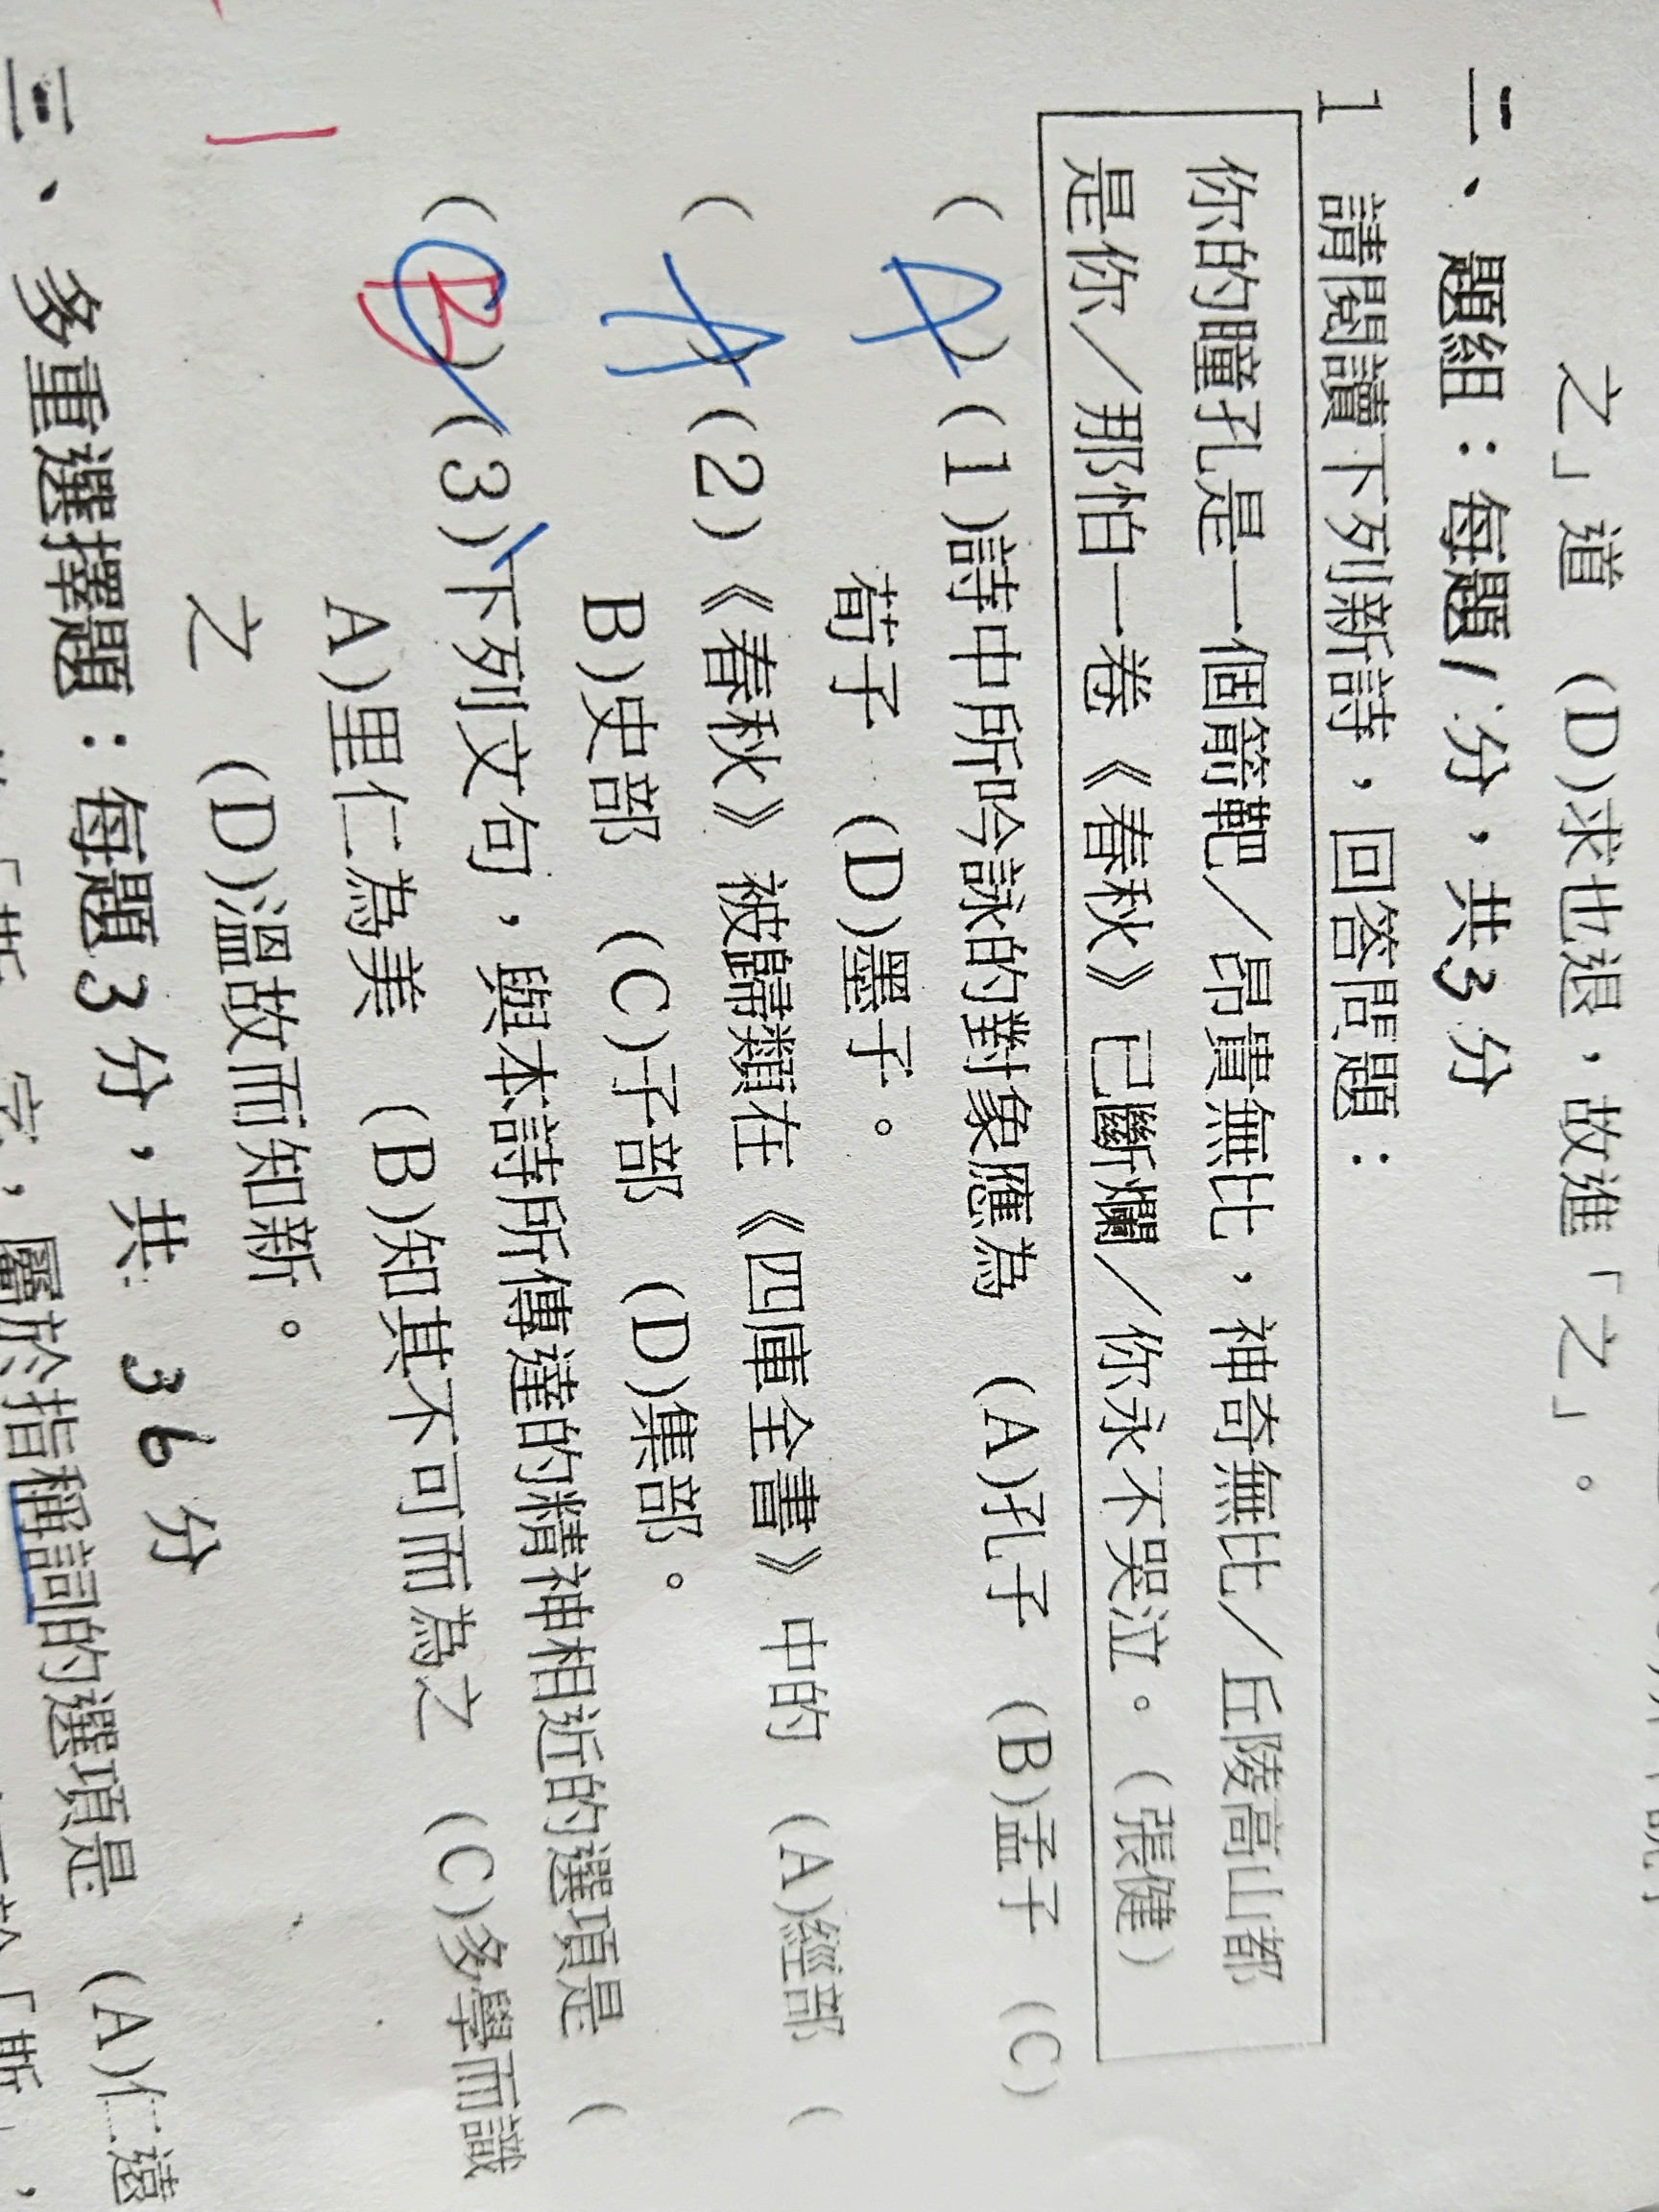 之」道 (D)求也退,故進「之」。
二、題組:每題1分,共3分
1 請閱讀下列新詩,回答問題:
你的瞳孔是一個箭靶/昂貴無比,神奇無比/丘陵高山都
是你/那怕一卷《春秋》已斷爛/你永不哭泣。(張健)
( A )(1)詩中所吟詠的對象應為 (A)孔子 (B)孟子 (C)
荀子 (D)墨子。
( A )(2)《春秋》被歸類在《四庫全書》中的 (A)經部 (
B)史部 (C)子部 (D)集部。
( B )(3)下列文句,與本詩所傳達的精神相近的選項是 (
A)里仁為美 (B)知其不可而為之 (C)多學而識
之 (D)溫故而知新。
三、多重選擇題:每題3分,共36分
字,屬於指稱詞的選項是 (A)仁遠